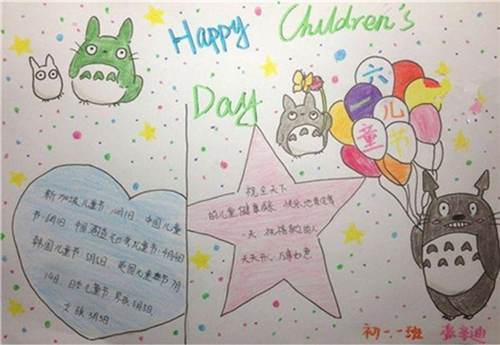 Happy Children's
Day
六
一 儿
童 节
儿童节:10月1日. 中国儿童
节:6月1日 中国 儿童节:4月4日
韩国儿童节:5月5日 英国儿童 7月
14日. 日本儿童节: 男孩5月5日
女孩3月3日
祝全天下
的儿童健康 快乐地
一天. 祝福 的人
天天开心 万事如意
初一.一班 张 迪